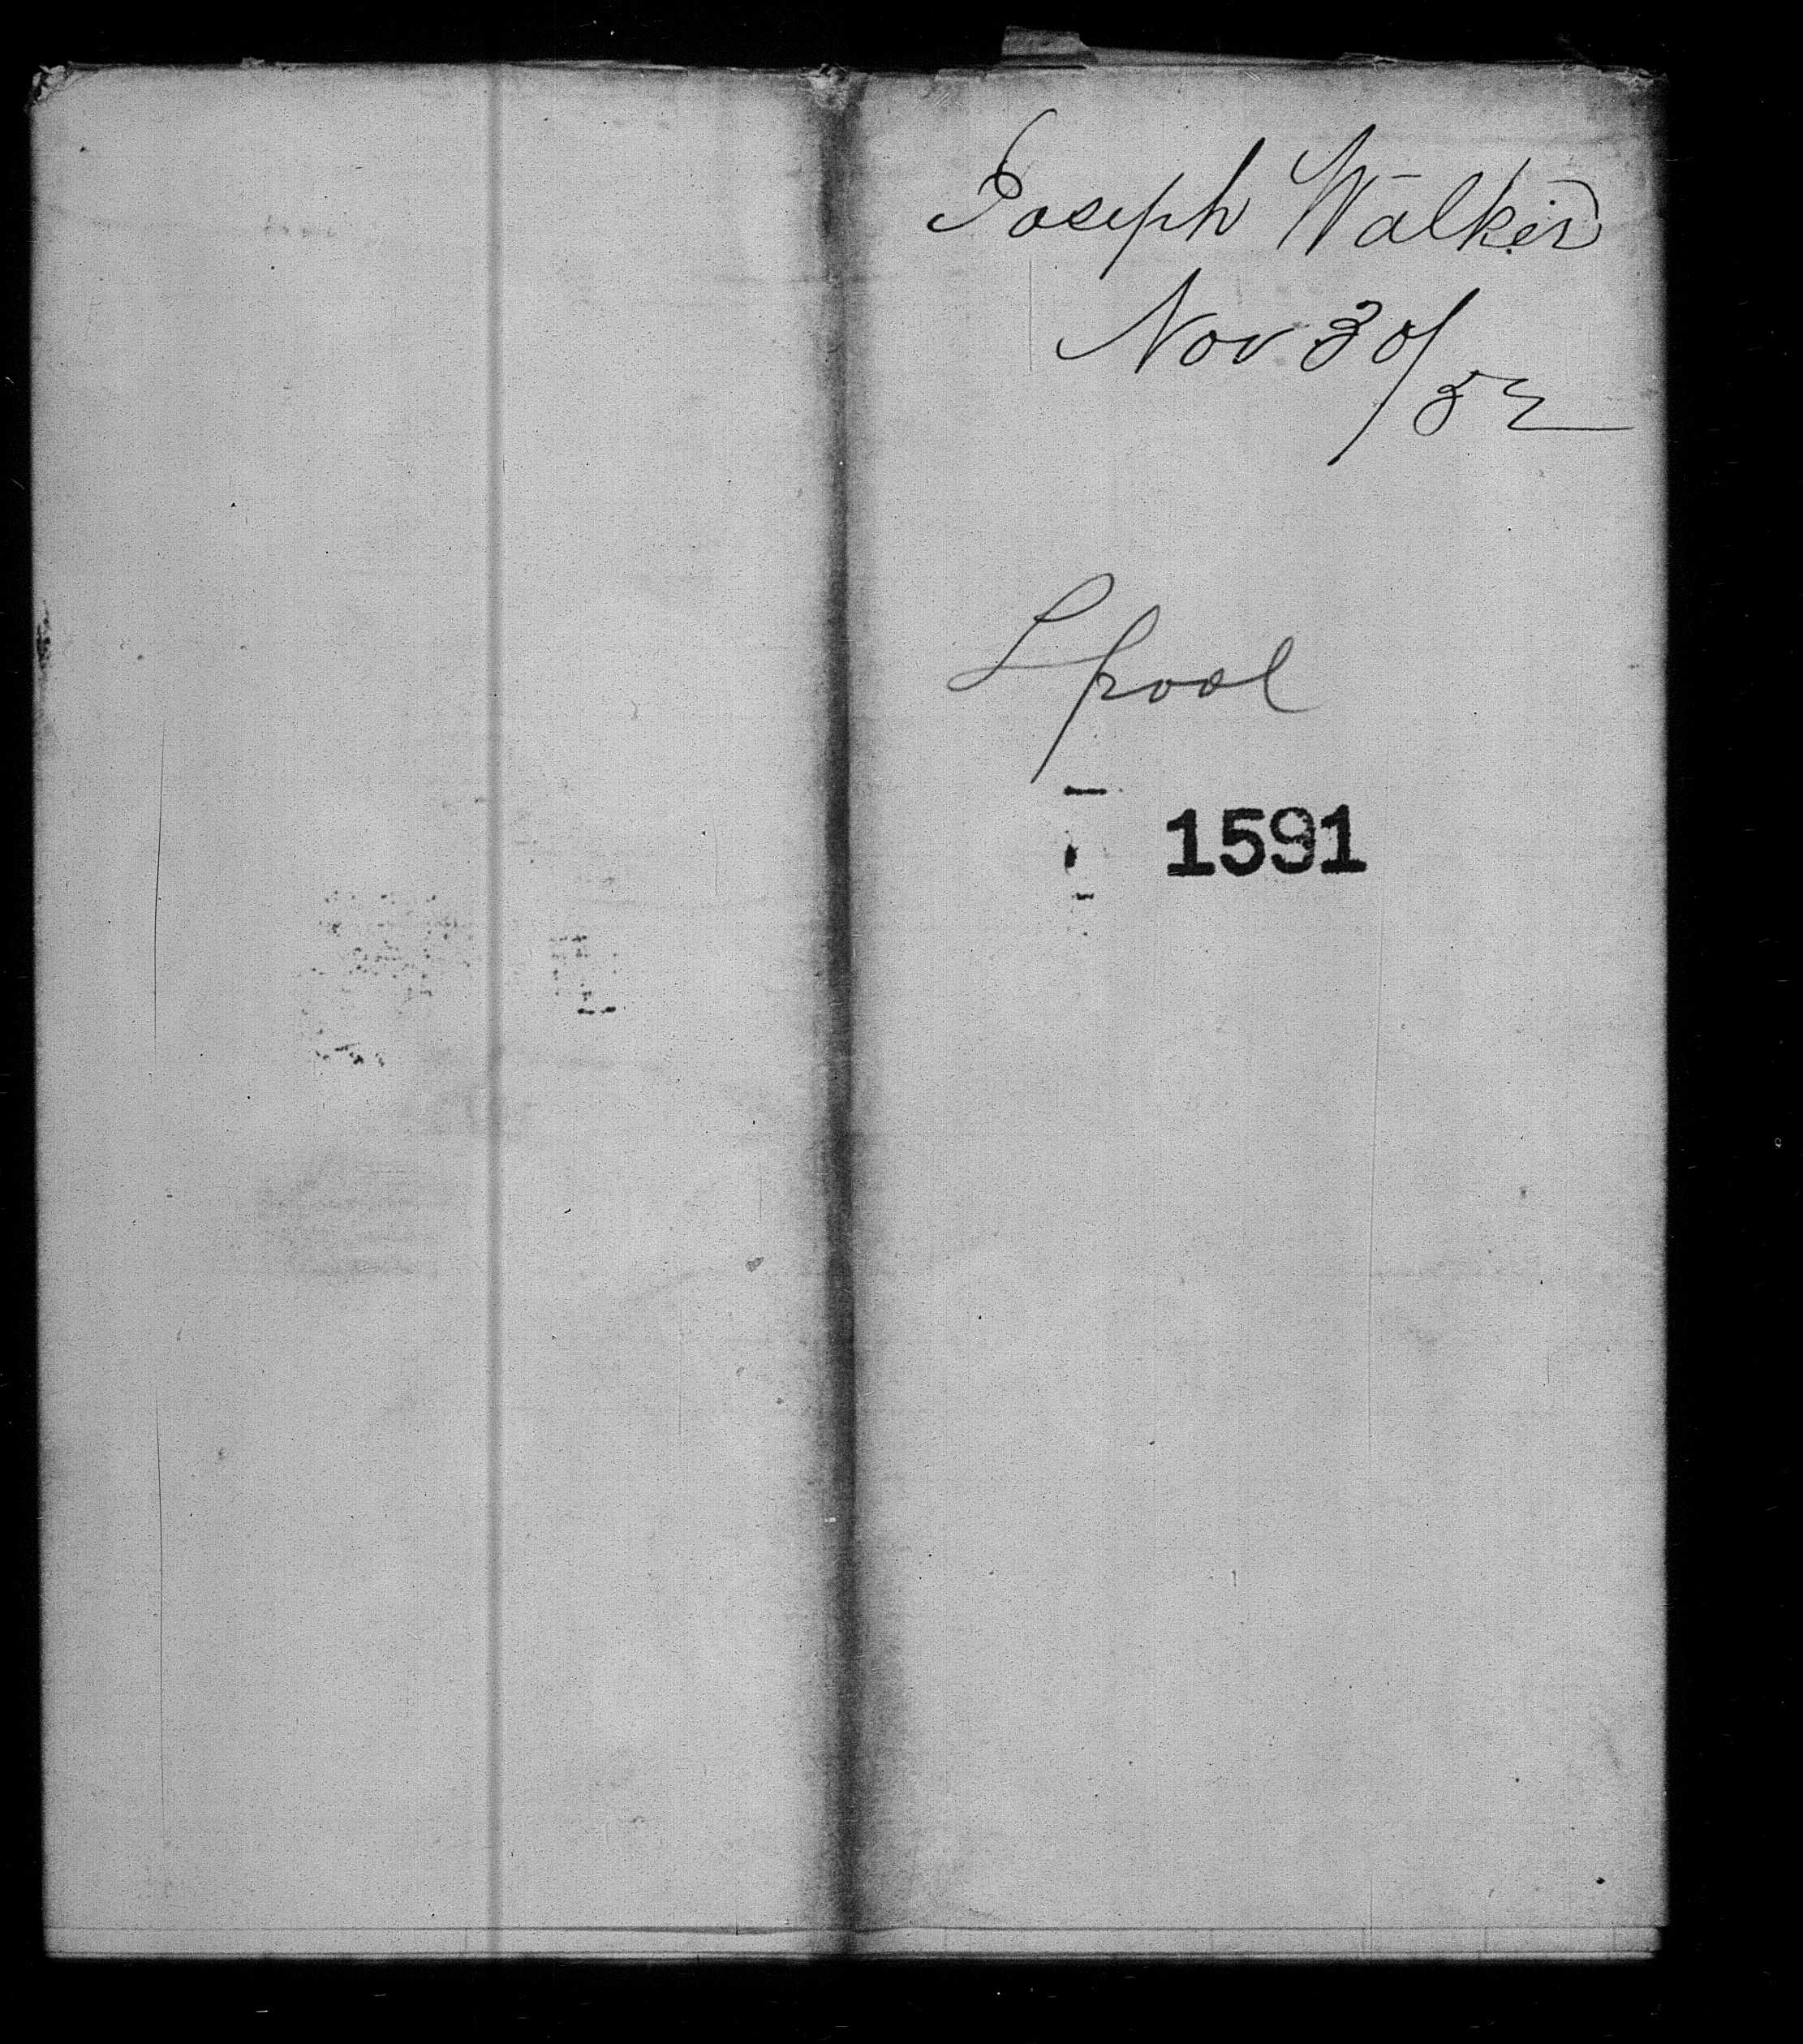 Joseph Walker
Nov 30/52
L pool
1591